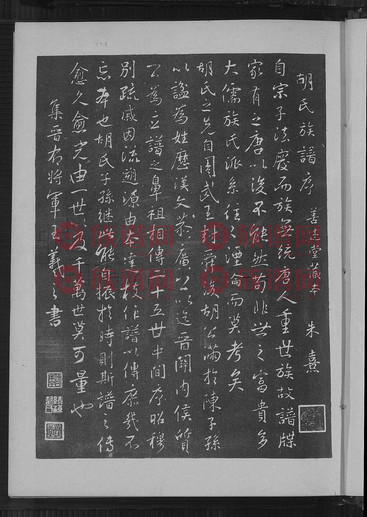 胡氏族譜序 善述堂藏本 朱熹
自宗子法廢而族無統唐人重世族故譜牒
家有之唐以後不能然苟非世之富貴多
大儒族氏派系往往湮淪而莫考矣
胡氏之先自周武王封舜後胡公滿於陳子孫
以諡為姓歷漢文恭廣公以迄晉關內侯質
公為立譜之鼻祖相傳二十五世中間序昭穆
別疏戚因流遡源由本達枝作譜以傳庶幾不
忘本也胡氏子孫繼此能自振於時則斯譜之傳
愈久愈光由一世以及千萬世莫可量也
集晉右將軍王羲之書